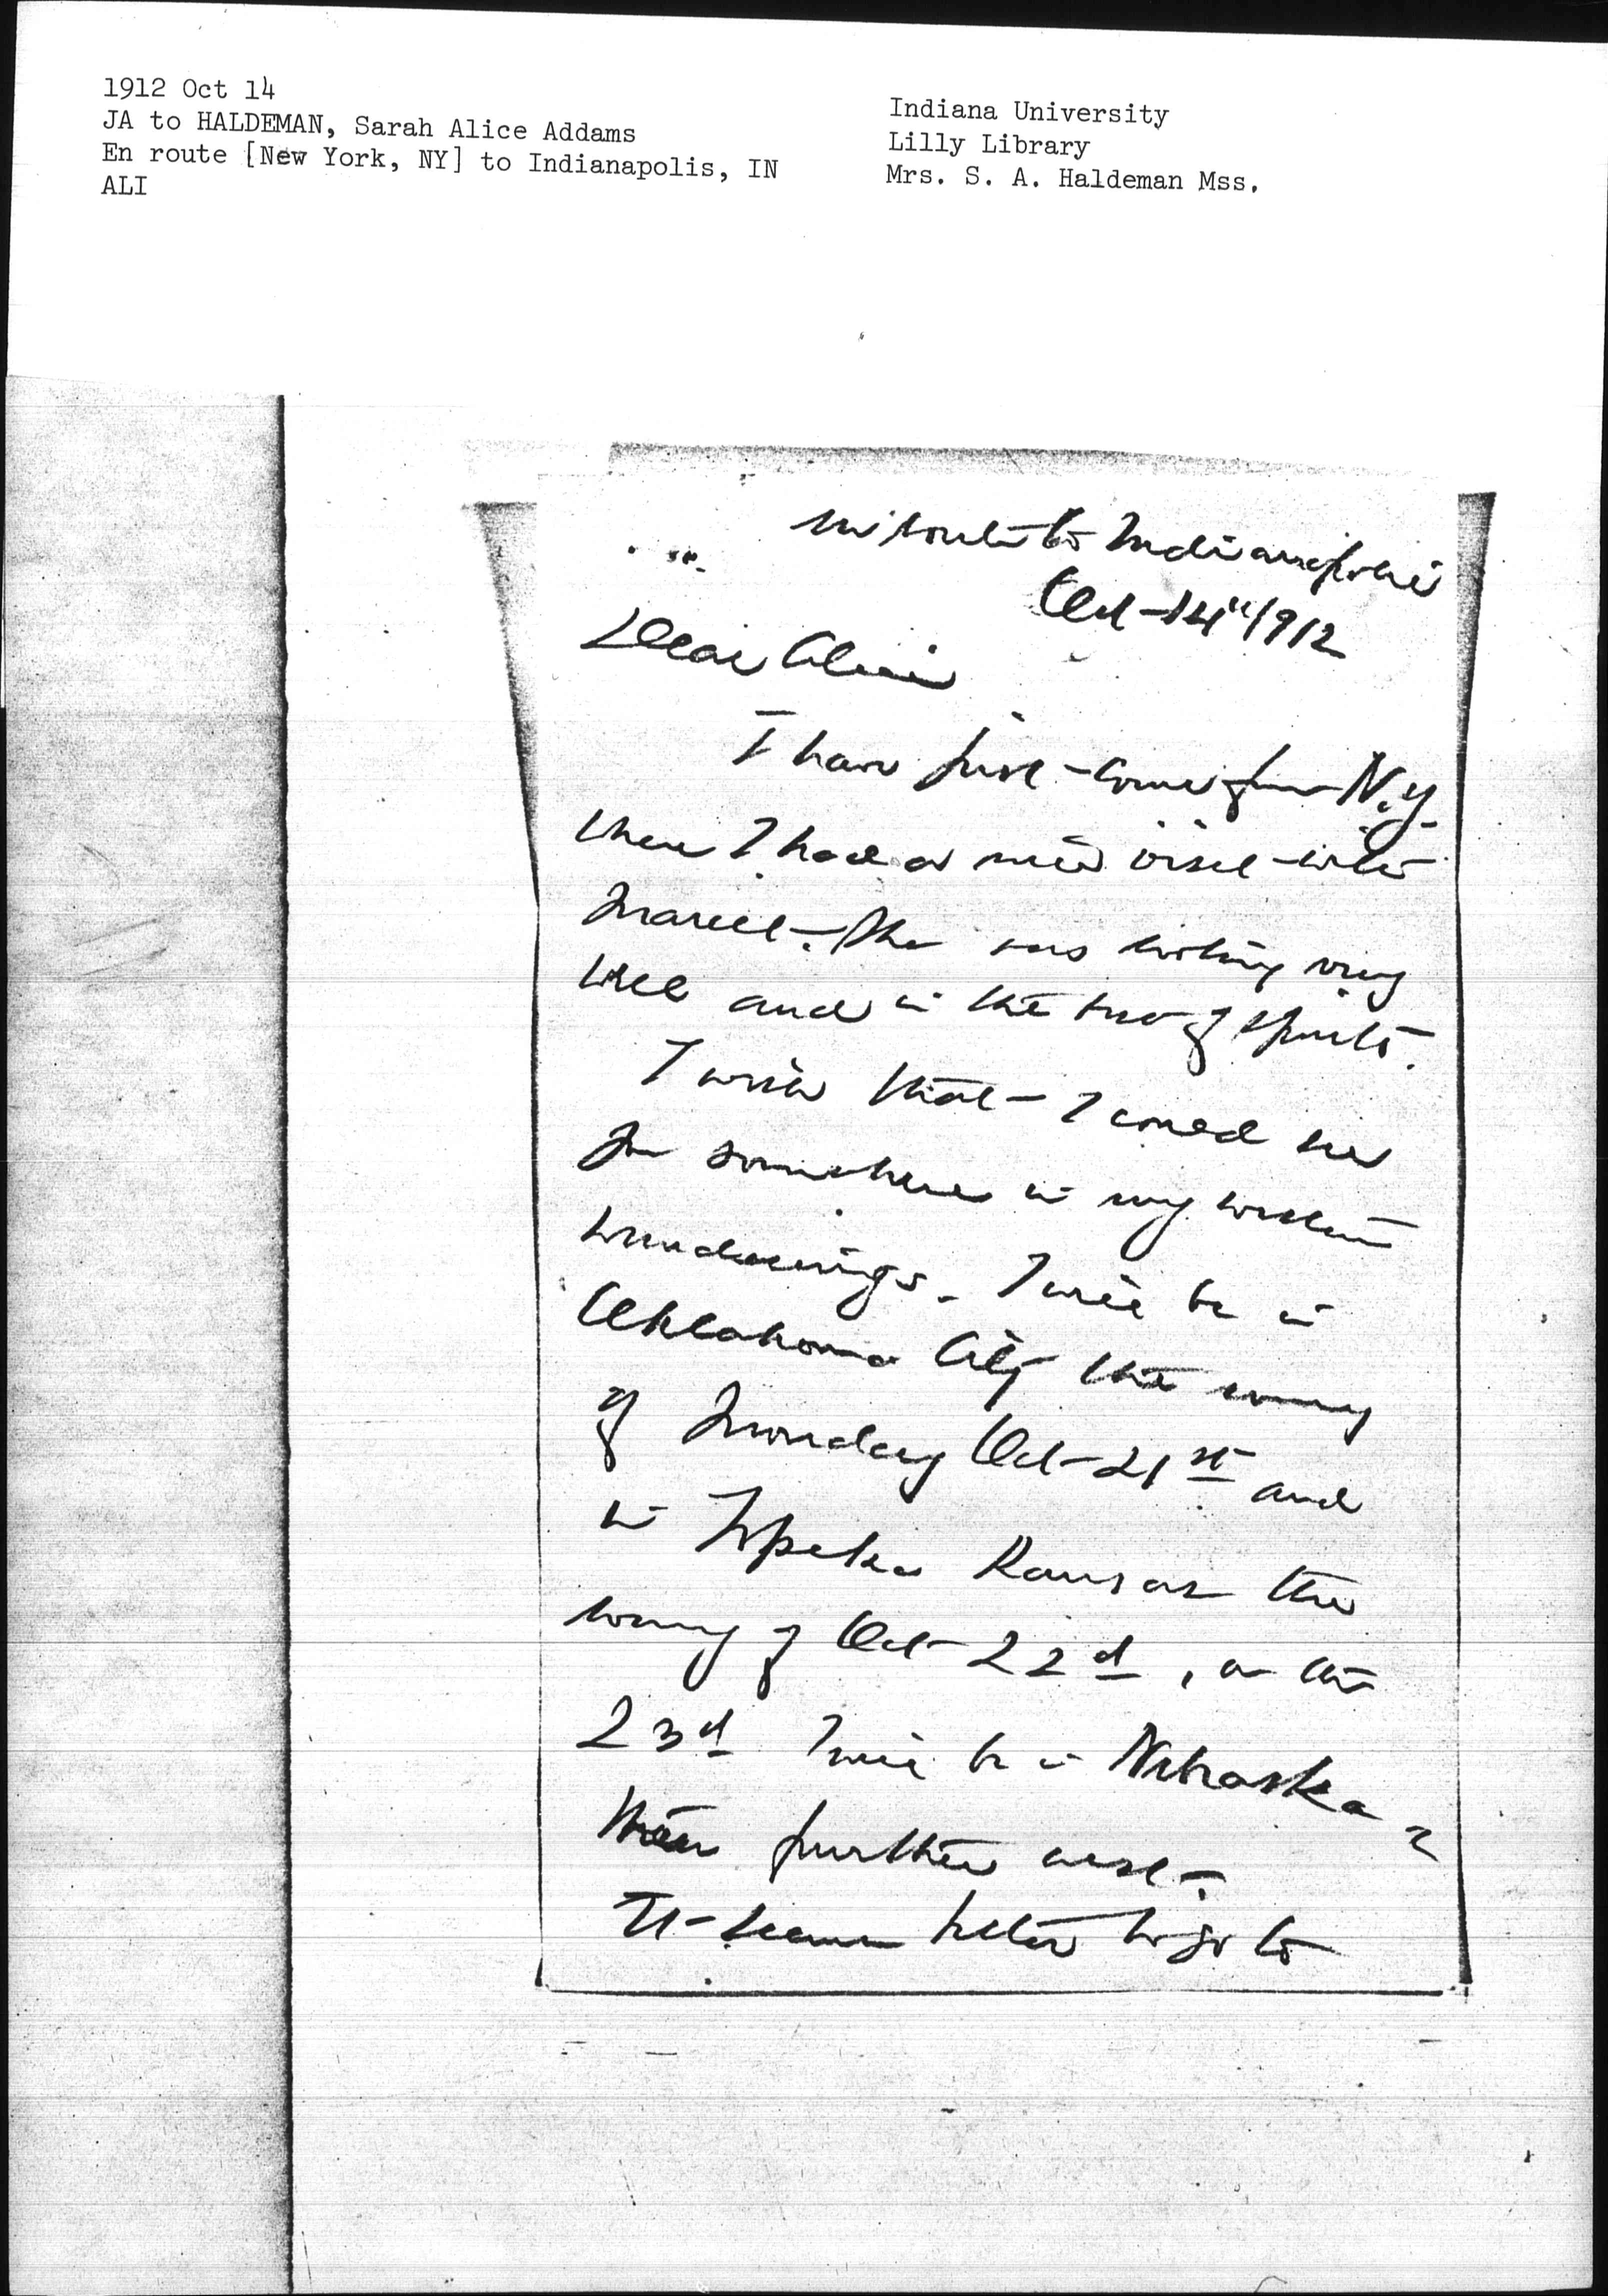 1912 Oct 14
JA to HALDEMAN, Sarah Alice Addams
En route [New York, NY] to Indianapolis, IN
ALI
Indiana University
Lilly Library
Mrs. S. A. Haldeman Mss.
en route to Indianapolis
Oct-14" 1912
Dear Alice
I have just come from N.Y.
where I had a nice visit with
Marcet. She was looking very
well and in the best of spirits.
I wish that I could see
you somewhere in my western
wanderings. I will be in
Oklahoma City the evening
of Monday Oct 21st and
in Topeka Kansas the
evening of Oct 22d, on the
23d I will be in Nebraska &
then further west.
It seems better to go to